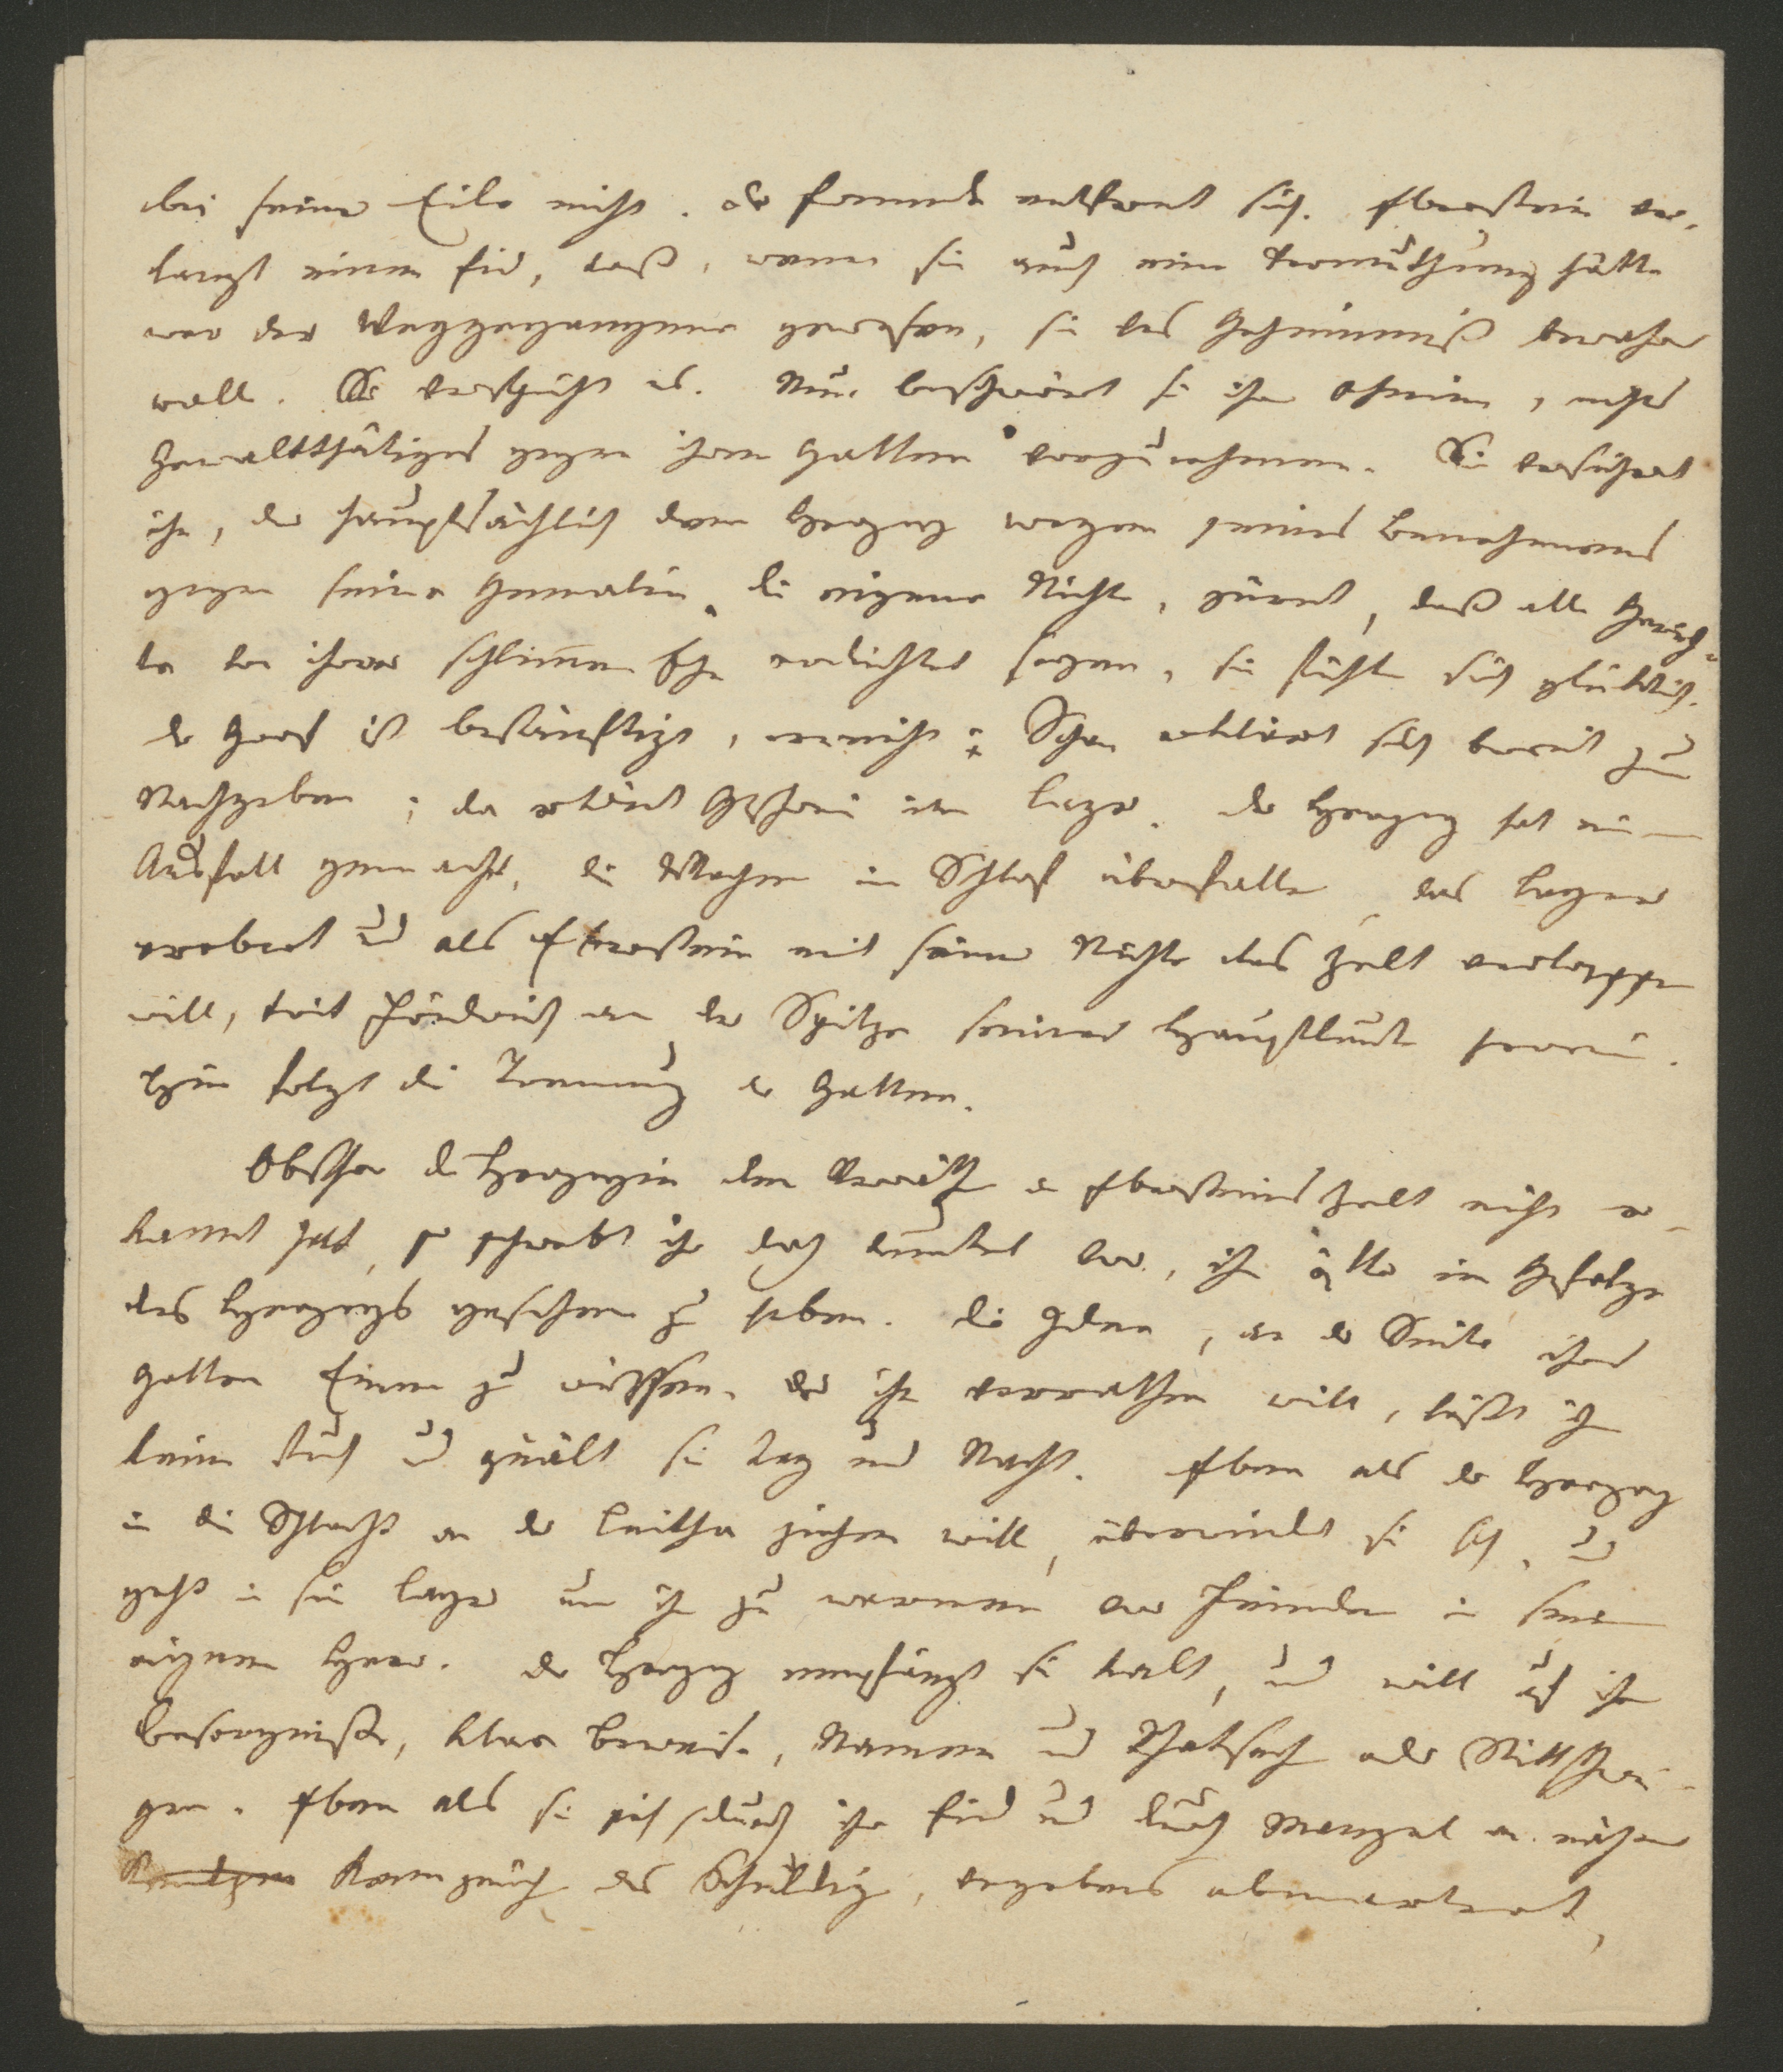 bei seiner Eile nicht. Der Fremde entfernt sich. Eberstein ver-
langt einen Eid, daß, wenn sie auch eine Vermuthung hätte
wer der Weggegangene gewesen, sie das Geheimniß bewahren
wolle. Sie verspricht es. Nun beschwört sie ihn Oheim, nichts
Gewaltthätiges gegen ihren Gatten vorzunehmen. Sie versichert
ihn, der hauptsächlich dem Herzog wegen seines Benehmens
gegen seine Gemalin, die eigene Nichte, zürnt, daß alle Gerüch-
te von ihrer schlimmen Ehe erdichtet seyen, sie fühle sich glücklich.
Der Graf ist besänftigt, erweicht; Schon erklärt sich bereit zum
Nachgeben; da ertönt Geschrei im Lager. Der Herzog hat einen
Ausfall gemacht, die Wachen im Schlaf überfallen, das Lager
erobert und als Eberstein mit seiner Nichte das Zelt verlassen
will, tritt Friedrich an der Spitze seiner Hauptleute herein.
Hier folgt die Trennung der Gatten.
Obschon die Herzogin den Verräther in Ebersteins Zelt nicht er-
kannt hat, so schwebt ihr doch dunkel vor, ihn öfter im Gefolge
des Herzogs gesehen zu haben. Die Idee, an der Seite ihres
Gatten Einen zu wissen, der ihn verrathen will, läßt ihr
keine Ruh und quält sie Tag und Nacht. Eben als der Herzog
in die Schlacht an der Leitha ziehen will, überwindet sie sich, und
geht in sein Lager um ihn zu warnen vor Feinden in seinem
eigenen Heer. Der Herzog empfängt sie kalt, und will auf ihre
Besorgnisse, klare Beweise, Namen und Thatsachen oder Stillschwei-
gen. Eben als sie sich durch ihren Eid und durch Mangel an näherer
Kennzeichen des Schuldigen, vergebens abmartert,